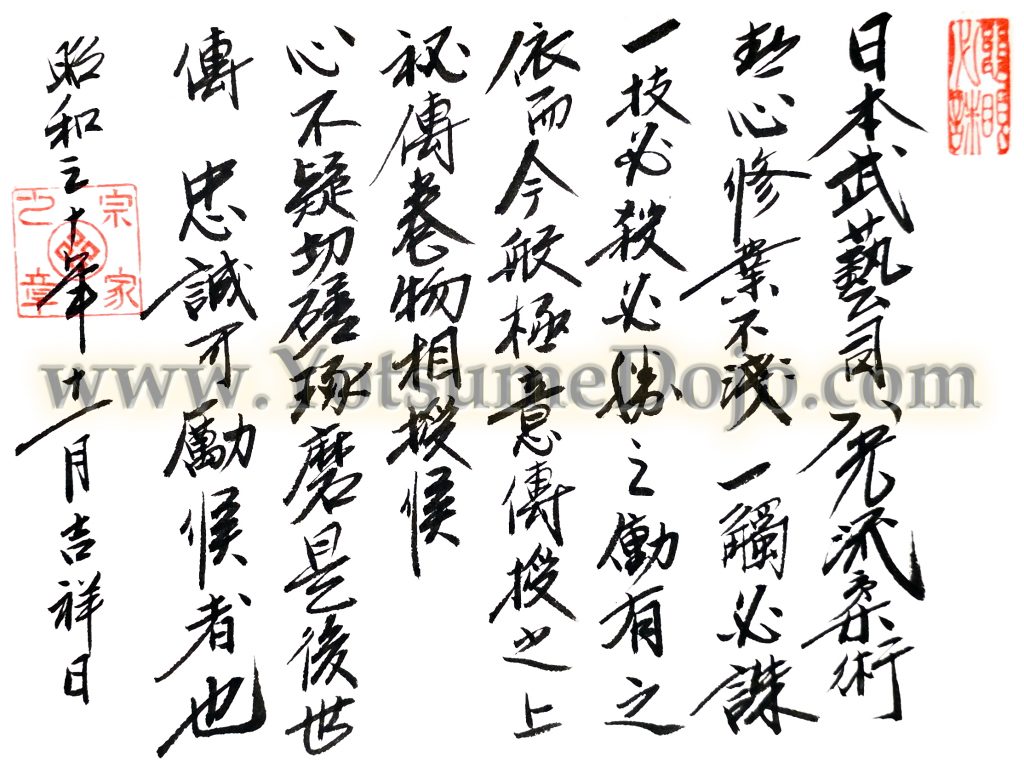 日本武藝司八光流柔術
熱心修業不浅 一觸必誅
一技必殺必勝之働有之
依而今般極意傳授之上
祕傳巻物相授候
心不疑切磋琢磨是後世
傳 忠誠可勵候者也
昭和三十年十一月吉祥日
宗家之章
www.YotsumeDojo.com